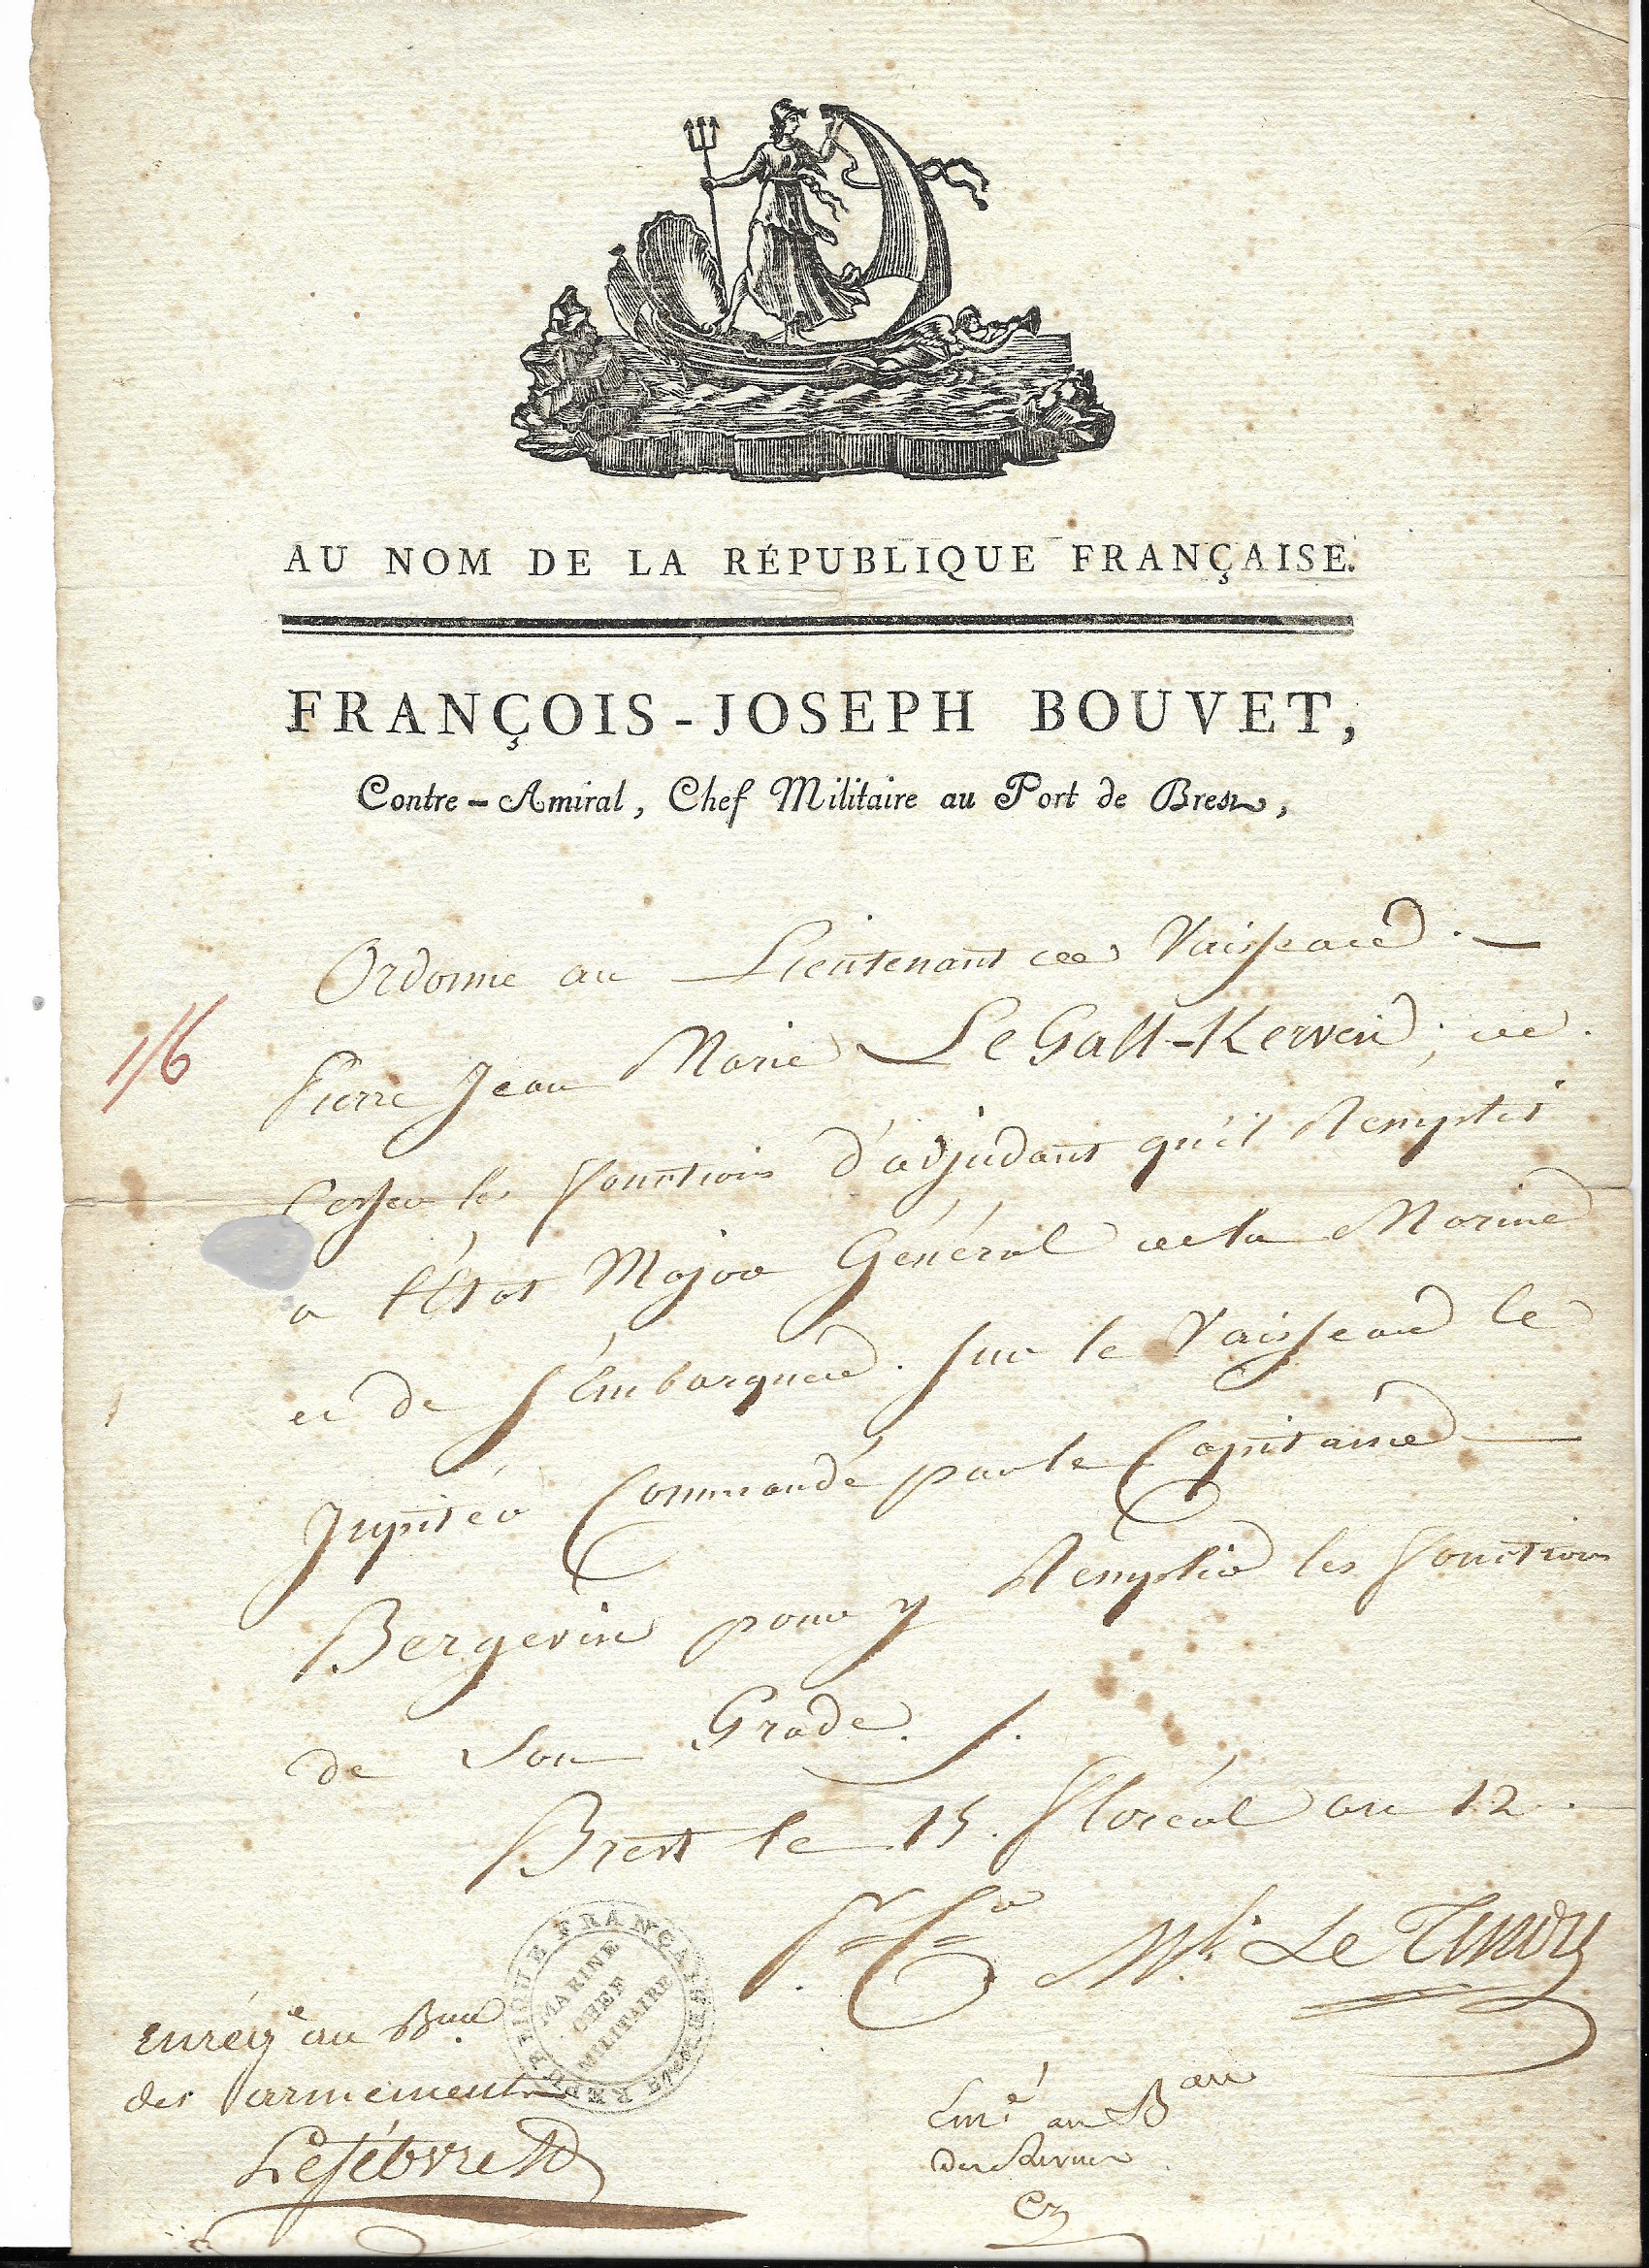 AU NOM DE LA RÉPUBLIQUE FRANÇAISE.
FRANÇOIS-JOSEPH BOUVET,
Contre-Amiral, Chef Militaire au Port de Brest,
Ordonne au Lieutenant de Vaisseau
1/6
Pierre Jean Marie Le Gall-Kerven, de
Cesser les fonctions d'adjudant qu'il Remplit
a l'État Major Général de la Marine
et de s'Embarquer sur le Vaisseau le
Jupiter Commandé par le Capitaine
Bergevin pour y Remplir les fonctions
de Son Grade.
Brest le 15. floréal an 12.
enrég.é au B.eau
des armements
Lefébvre
RÉPUBLIQUE FRANÇAISE
MARINE
CHEF
MILITAIRE
Enr.é au B.eau
des Revues